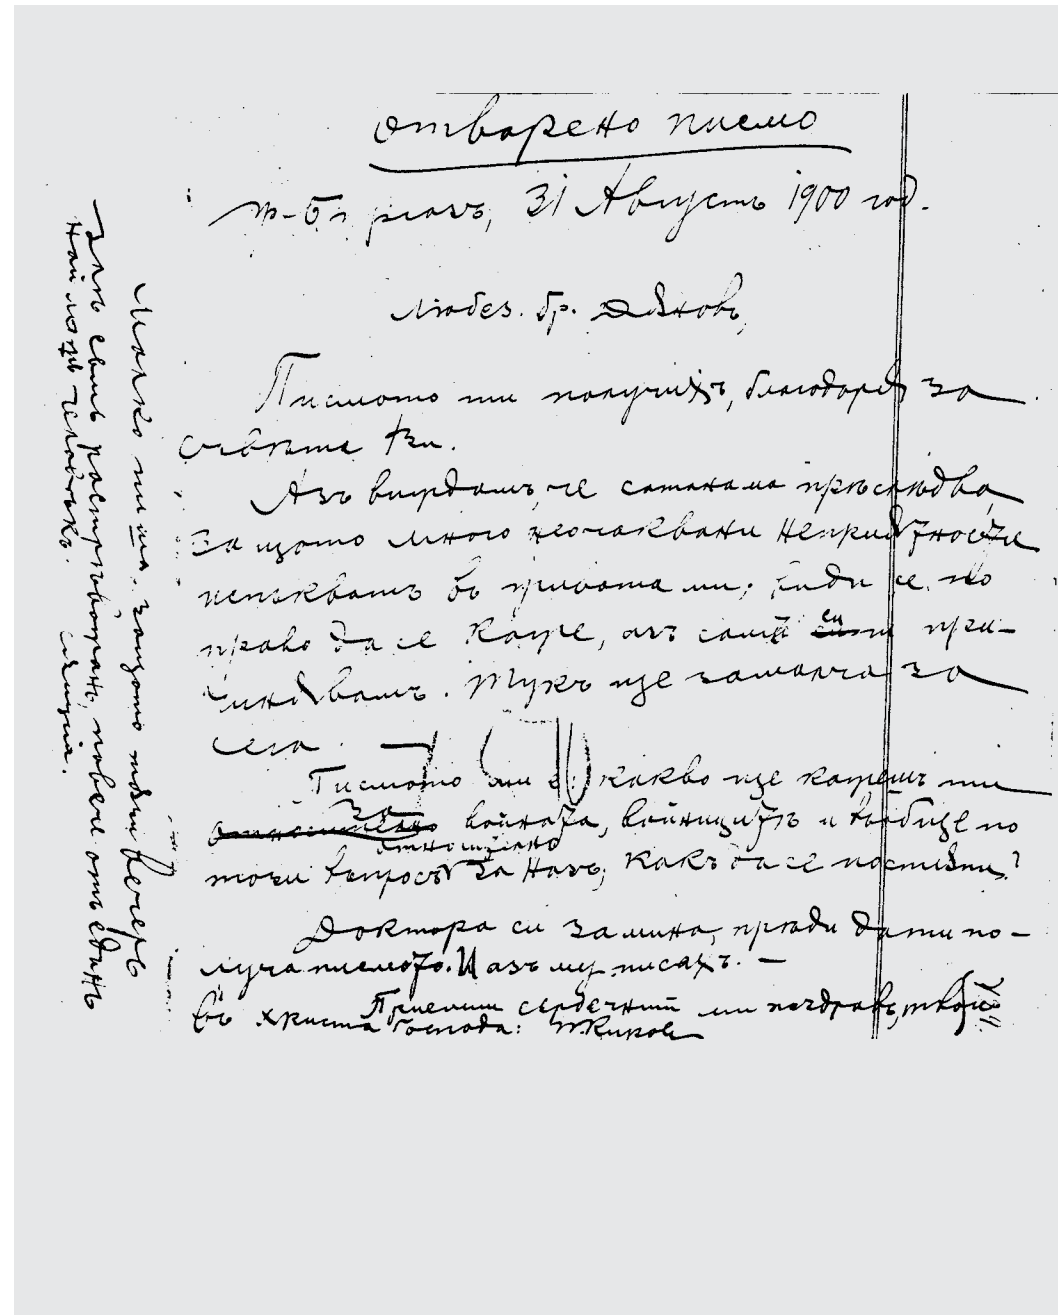 отворено писмо
31 Августъ 1900 год.
Любез. бр. Дѣновъ,
Писмото ти получихъ, благодарѣ за
съвѣта ти.
Азъ виждамъ, че сатана ма прѣслѣдва,
защото много неочаквани неприятности
испъкватъ въ живота ми; види се, по
право да се каже, азъ самъ си ги при-
чинявамъ. Тукъ ще замълча за
сега. —
Писмото ми е: какво ще кажешъ ти
за войната, войницитѣ и въобще по
относително
този въпросъ за насъ, какъ да се постѫпи?
Доктора си замина, прѣди да ти по-
луча писмото. И азъ му писахъ. —
Приеми сърдечний ми поздравъ, твой
въ Христа Господа:
Малко пиша, защото тѣзи вечеръ
азъ съмъ растрѣвоженъ, повече отъ единъ
най лошъ человѣкъ.